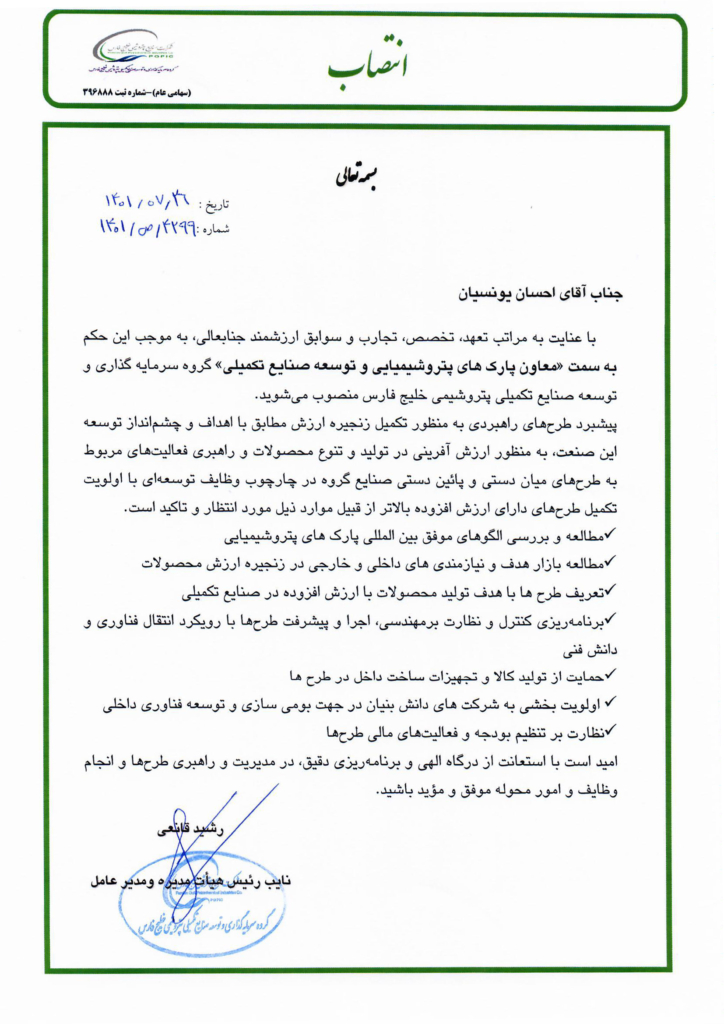 انتصاب
گروه سرمایه گذاری و توسعه صنایع تکمیلی پتروشیمی خلیج فارس
(سهامی عام)-شماره ثبت ۳۹۶۸۸۸
بسمه تعالی
تاریخ : ۱۴۰۱/۰۷/۲۶
شماره : ۱۴۰۱/ص/۴۲۹۹
جناب آقای احسان یونسیان
با عنایت به مراتب تعهد، تخصص، تجارب و سوابق ارزشمند جنابعالی، به موجب این حکم
به سمت «معاون پارک های پتروشیمیایی و توسعه صنایع تکمیلی» گروه سرمایه گذاری و
توسعه صنایع تکمیلی پتروشیمی خلیج فارس منصوب می‌شوید.
پیشبرد طرح‌های راهبردی به منظور تکمیل زنجیره ارزش مطابق با اهداف و چشم‌انداز توسعه
این صنعت، به منظور ارزش آفرینی در تولید و تنوع محصولات و راهبری فعالیت‌های مربوط
به طرح‌های میان دستی و پائین دستی صنایع گروه در چارچوب وظایف توسعه‌ای با اولویت
تکمیل طرح‌های دارای ارزش افزوده بالاتر از قبیل موارد ذیل مورد انتظار و تاکید است.
✓مطالعه و بررسی الگوهای موفق بین المللی پارک های پتروشیمیایی
✓مطالعه بازار هدف و نیازمندی های داخلی و خارجی در زنجیره ارزش محصولات
✓تعریف طرح ها با هدف تولید محصولات با ارزش افزوده در صنایع تکمیلی
✓برنامه‌ریزی کنترل و نظارت برمهندسی، اجرا و پیشرفت طرح‌ها با رویکرد انتقال فناوری و
دانش فنی
✓حمایت از تولید کالا و تجهیزات ساخت داخل در طرح ها
✓ اولویت بخشی به شرکت های دانش بنیان در جهت بومی سازی و توسعه فناوری داخلی
✓نظارت بر تنظیم بودجه و فعالیت‌های مالی طرح‌ها
امید است با استعانت از درگاه الهی و برنامه‌ریزی دقیق، در مدیریت و راهبری طرح‌ها و انجام
وظایف و امور محوله موفق و مؤید باشید.
رشید قانعی
نایب رئیس هیأت مدیره ومدیر عامل
گروه سرمایه گذاری و توسعه صنایع تکمیلی پتروشیمی خلیج فارس